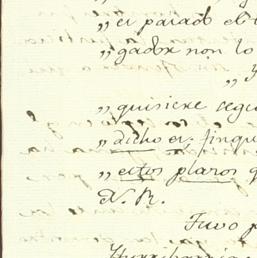 „ er parado el
„ gador non lo
„ y
„ quisiere segu
„ dicho es; finque
„ estos plazos q
N. R.
Tuvo p